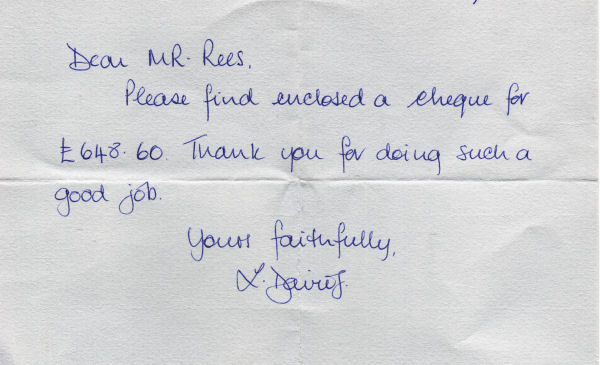 Dear MR. Rees,
Please find enclosed a cheque for
£648.60. Thank you for doing such a
good job.
Yours faithfully,
L. Davies.